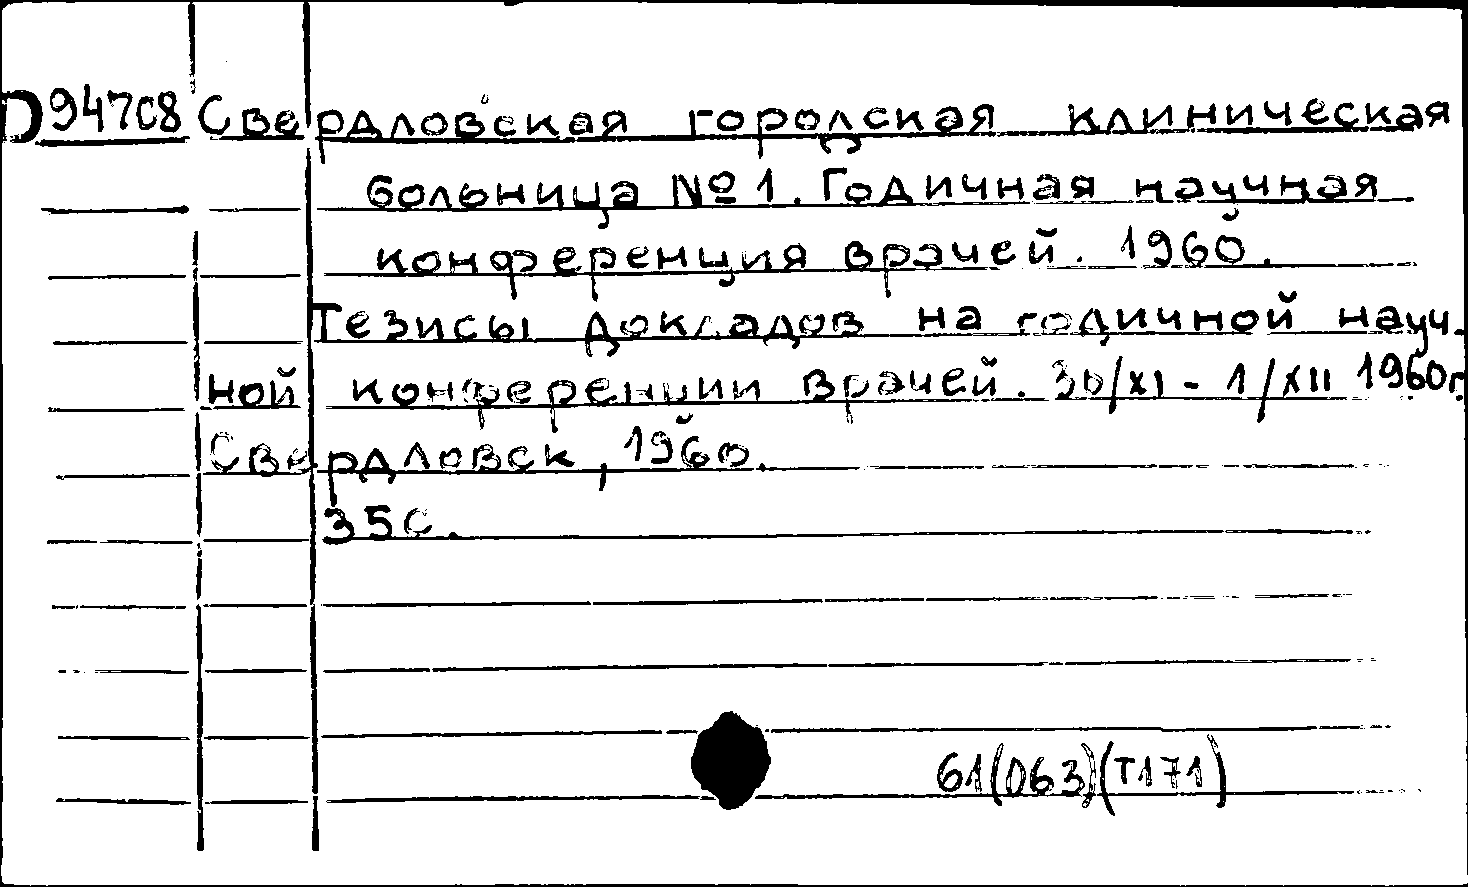 D94708 Свердловская городская клиническая
больница №1. Годичная научная
конференция врачей. 1960.
Тезисы докладов на годичной науч-
ной конференции врачей. 30/XI - 1/XII 1960г.
Свердловск, 1960.
35с.
61(063)(Т171)